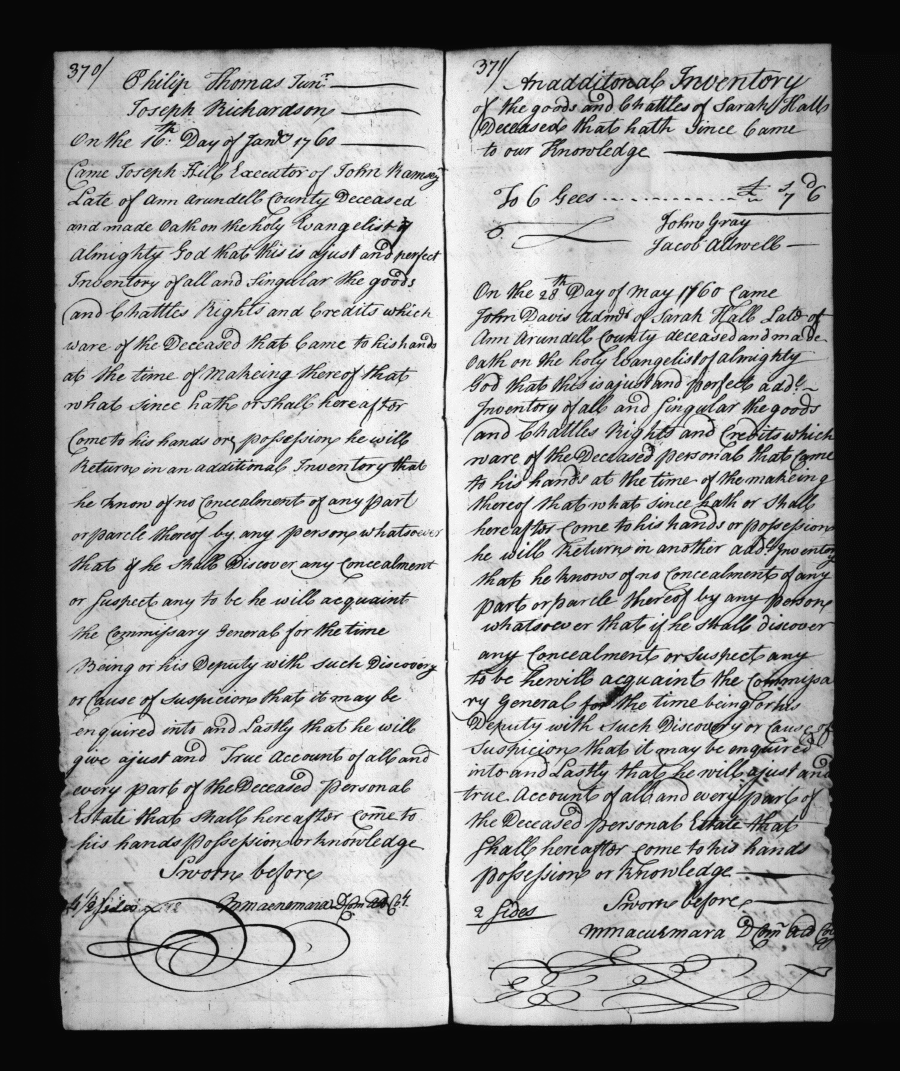 370/
Philip Thomas Junr
Joseph Richardson
On the 16th: Day of Janry 1760
Came Joseph Hill Executor of John Ramsey
Late of Ann Arundell County Deceased
and made Oath on the holy Evangelist of
Almighty God that this is a just and perfect
Inventory of all and Singular the goods
and Chattles Rights and Credits which
ware of the Deceased that Came to his hands
at the time of Makeing thereof that
what since hath or shall hereafter
Come to his hands or possession he will
Return in an additional Inventory that
he know of no Concealment of any part
or parcle thereof by any person whatsoever
that if he shall Discover any Concealment
or suspect any to be he will acquaint
the Commissary General for the time
Being or his Deputy with such Discovery
or Cause of suspicion that it may be
enquired into and Lastly that he will
give a just and True Account of all and
every part of the Deceased personal
Estate that shall hereafter come to
his hands Possession or knowledge
Sworn before
4 1/2 sides
371/
An additonal Inventory
of the goods and Chattles of Sarah Hall
Deceased that hath Since Came
to our Knowledge
£ s d
To 6 Gees 7 6
John Gray
Jacob Allwell
On the 28th Day of May 1760 Came
John Davis Admr of Sarah Hall Late of
Ann Arundell County deceased and made
Oath on the holy Evangelist of almighty
God that this is a just and perfect addl
Inventory of all and Singular the goods
and Chattles Rights and Credits which
ware of the Deceased personal that Came
to his hands at the time of the makeing
thereof that what since hath or shall
hereafter come to his hands or possession
he will Return in another addl Inventory
that he knows of no Concealment of any
part or parcle thereof by any person
whatsoever that if he shall discover
any Concealment or suspect any
to be he will acquaint the Commissa
ry General for the time being or his
Deputy with such Discovery or Cause of
Suspicion that it may be enquired
into and Lastly that he will a just and
true Account of all and every part of
the Deceased personal Estate that
Shall hereafter come to his hands
possession or Knowledge
Sworn before
2 sides